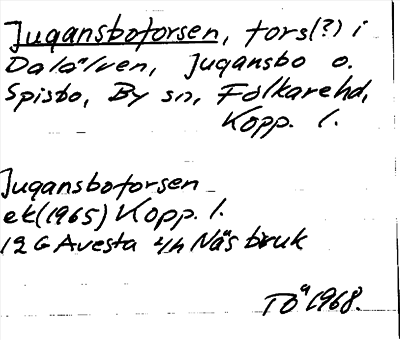 Jugansboforsen, fors(?) i
Dalälven, Jugansbo o.
Spisbo, By sn, Folkarehd,
Kopp. l.
Jugansboforsen
ek(1965) Kopp. l.
12 G Avesta 4h Näs bruk
TÖ 1968.